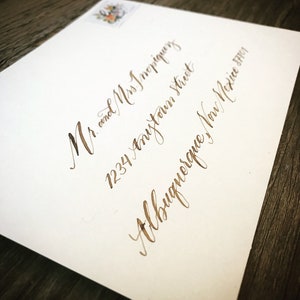 Mr. and Mrs. Inepiquay
1234 Anytown Street
Albuquerque, New Mexico 87109